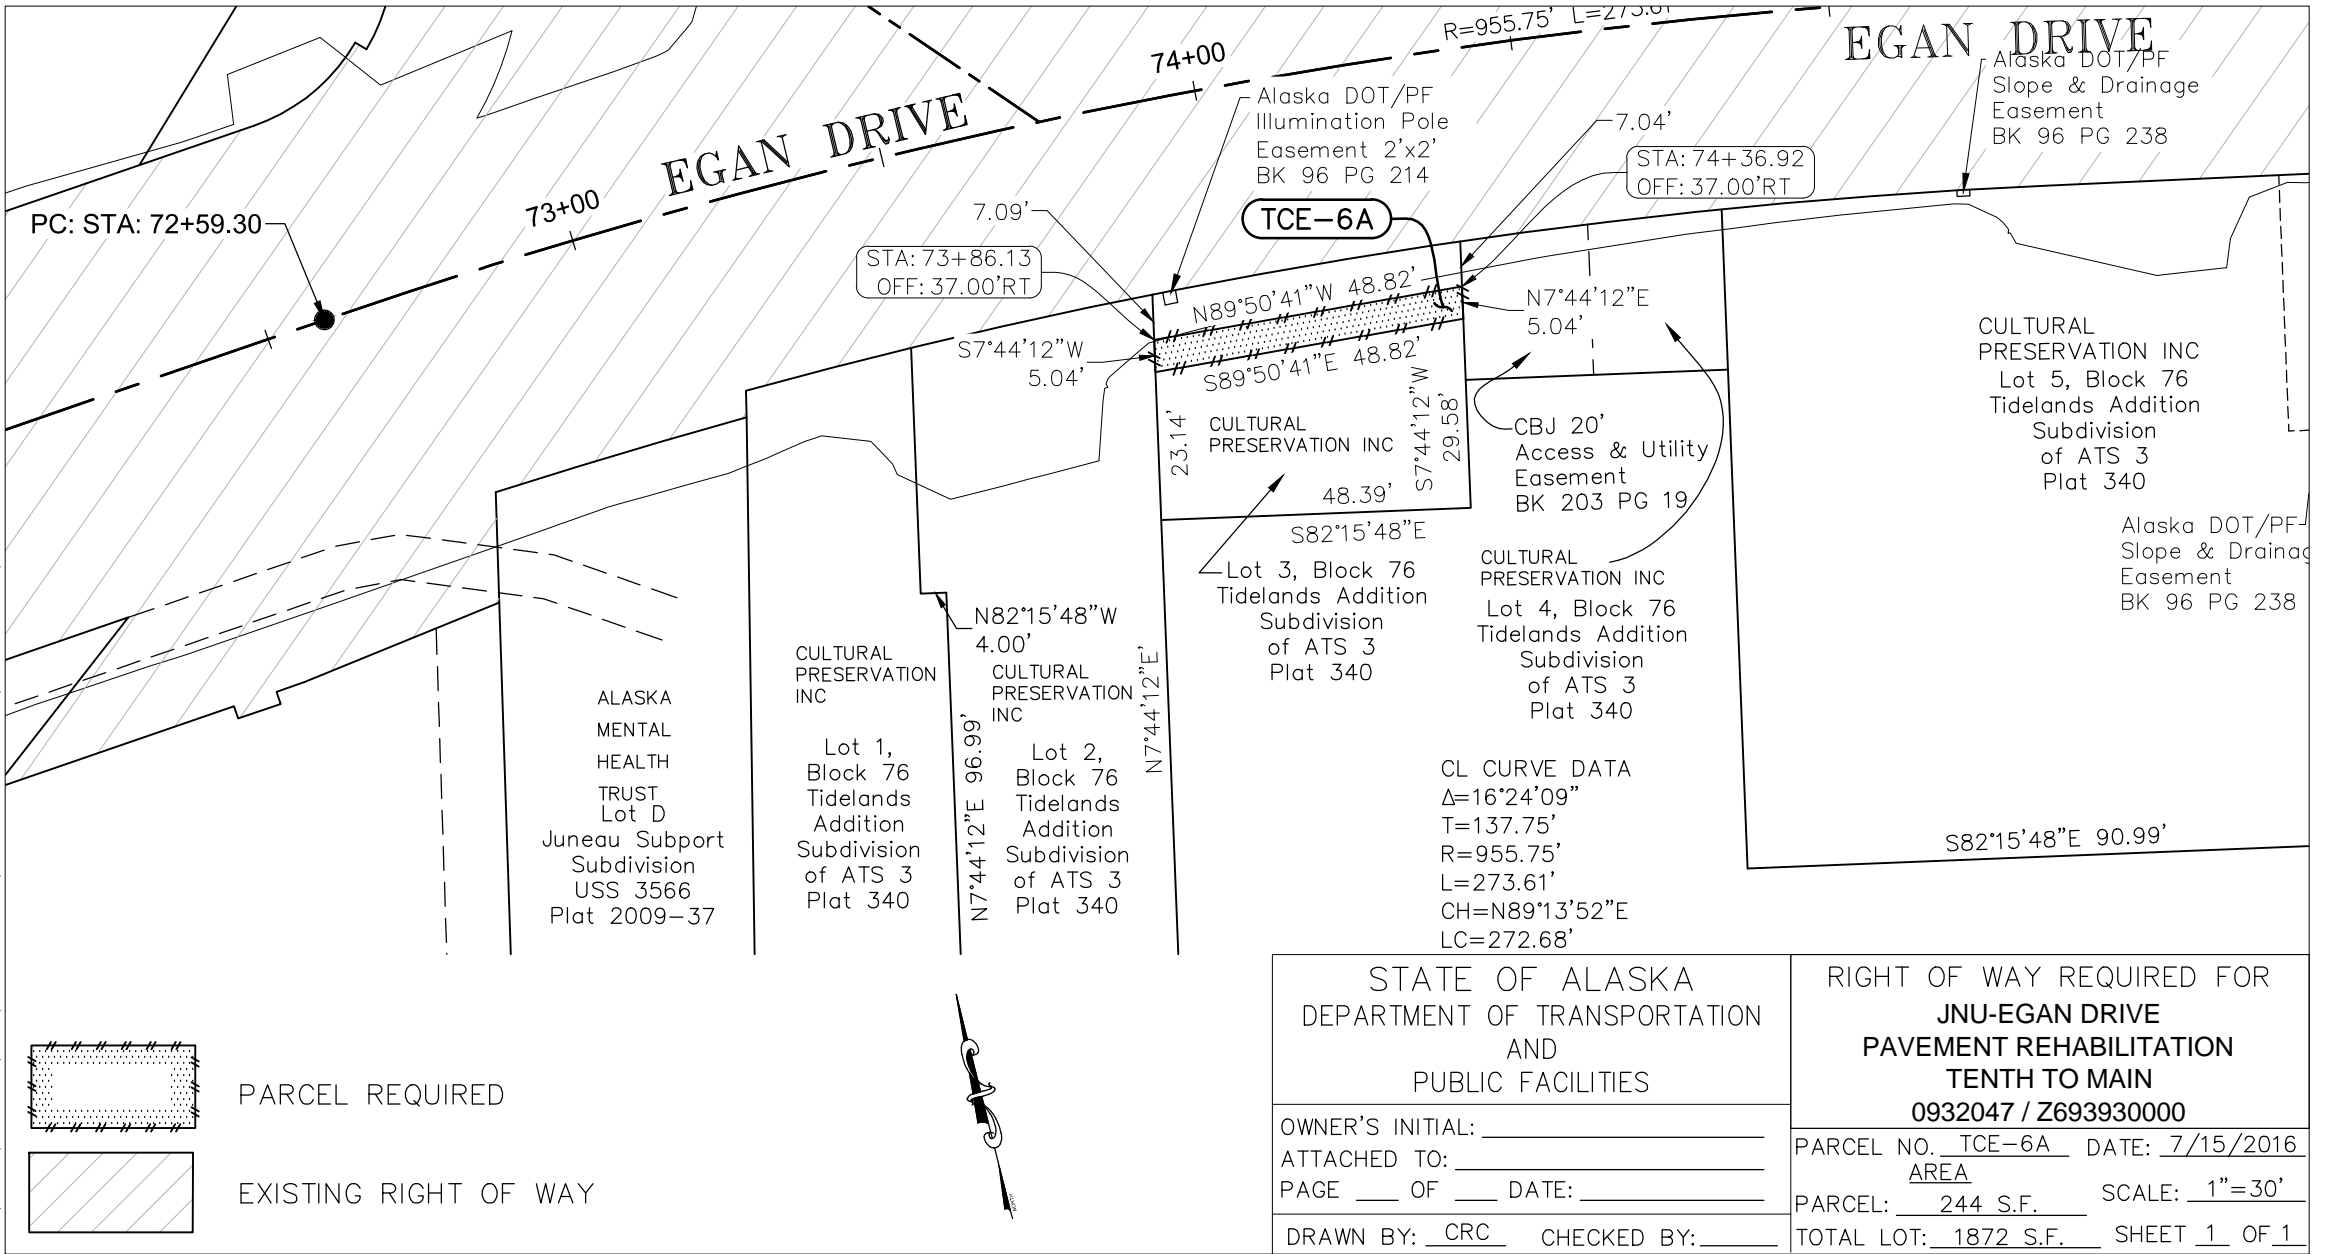 R=955.75' L=273.61'
EGAN DRIVE
74+00
Alaska DOT/PF
Slope & Drainage
Easement
BK 96 PG 238
Alaska DOT/PF
Illumination Pole
Easement 2'x2'
BK 96 PG 214
7.04'
EGAN DRIVE
STA: 74+36.92
OFF: 37.00'RT
73+00
PC: STA: 72+59.30
7.09'
TCE-6A
STA: 73+86.13
OFF: 37.00'RT
N89°50'41"W 48.82'
N7°44'12"E
5.04'
S7°44'12"W
5.04'
S89°50'41"E 48.82'
23.14'
CULTURAL
PRESERVATION INC
S7°44'12"W
29.58'
48.39'
S82°15'48"E
CBJ 20'
Access & Utility
Easement
BK 203 PG 19
CULTURAL
PRESERVATION INC
Lot 5, Block 76
Tidelands Addition
Subdivision
of ATS 3
Plat 340
Alaska DOT/PF
Slope & Drainag
Easement
BK 96 PG 238
Lot 3, Block 76
Tidelands Addition
Subdivision
of ATS 3
Plat 340
CULTURAL
PRESERVATION INC
Lot 4, Block 76
Tidelands Addition
Subdivision
of ATS 3
Plat 340
N82°15'48"W
4.00'
ALASKA
MENTAL
HEALTH
TRUST
Lot D
Juneau Subport
Subdivision
USS 3566
Plat 2009-37
CULTURAL
PRESERVATION
INC
Lot 1,
Block 76
Tidelands
Addition
Subdivision
of ATS 3
Plat 340
N7°44'12"E 96.99'
CULTURAL
PRESERVATION
INC
Lot 2,
Block 76
Tidelands
Addition
Subdivision
of ATS 3
Plat 340
N7°44'12"E'
CL CURVE DATA
Δ=16°24'09"
T=137.75'
R=955.75'
L=273.61'
CH=N89°13'52"E
LC=272.68'
S82°15'48"E 90.99'
PARCEL REQUIRED
EXISTING RIGHT OF WAY
NORTH
STATE OF ALASKA
DEPARTMENT OF TRANSPORTATION
AND
PUBLIC FACILITIES
OWNER'S INITIAL:
ATTACHED TO:
PAGE OF DATE:
DRAWN BY: CRC CHECKED BY:
RIGHT OF WAY REQUIRED FOR
JNU-EGAN DRIVE
PAVEMENT REHABILITATION
TENTH TO MAIN
0932047 / Z693930000
PARCEL NO. TCE-6A DATE: 7/15/2016
AREA
PARCEL: 244 S.F. SCALE: 1"=30'
TOTAL LOT: 1872 S.F. SHEET 1 OF 1